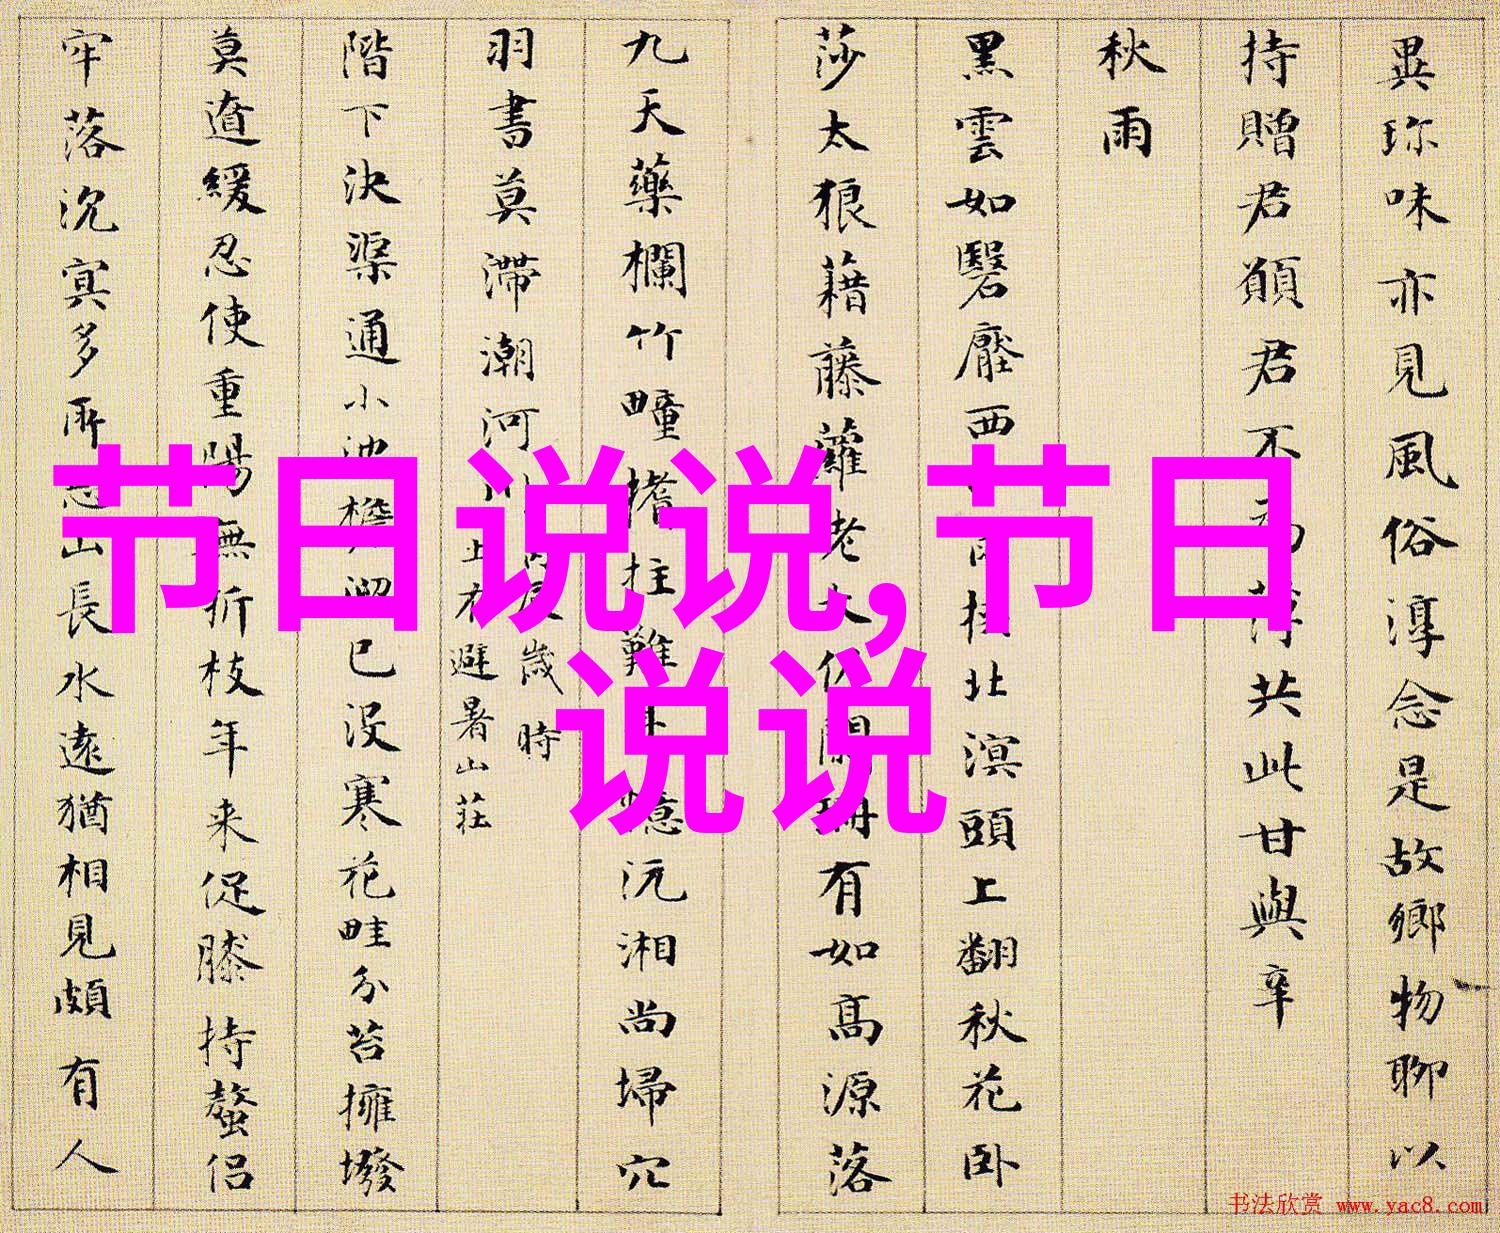 異珎味亦見風俗淳念是故鄉物聊以
持贈君願君不為薄共此甘與辛
秋雨
黑雲如翳壓西樹北溟頭上翻秋花卧
莎太狼藉藤蘿老如高源落
九天藥欄竹疃揩拄難憶沅湘尚埽穴
羽書莫滯潮河川
歲時
上衣避暑山莊
階下決渠通小池已沒寒花畦分苔擁墢
莫遒緩忍使重陽無折枝年来促膝持螯侣
牢落沉冥多所山長水遠猶相見頗有人
节日说说,节日
说说
书法欣赏 www.yac8.com